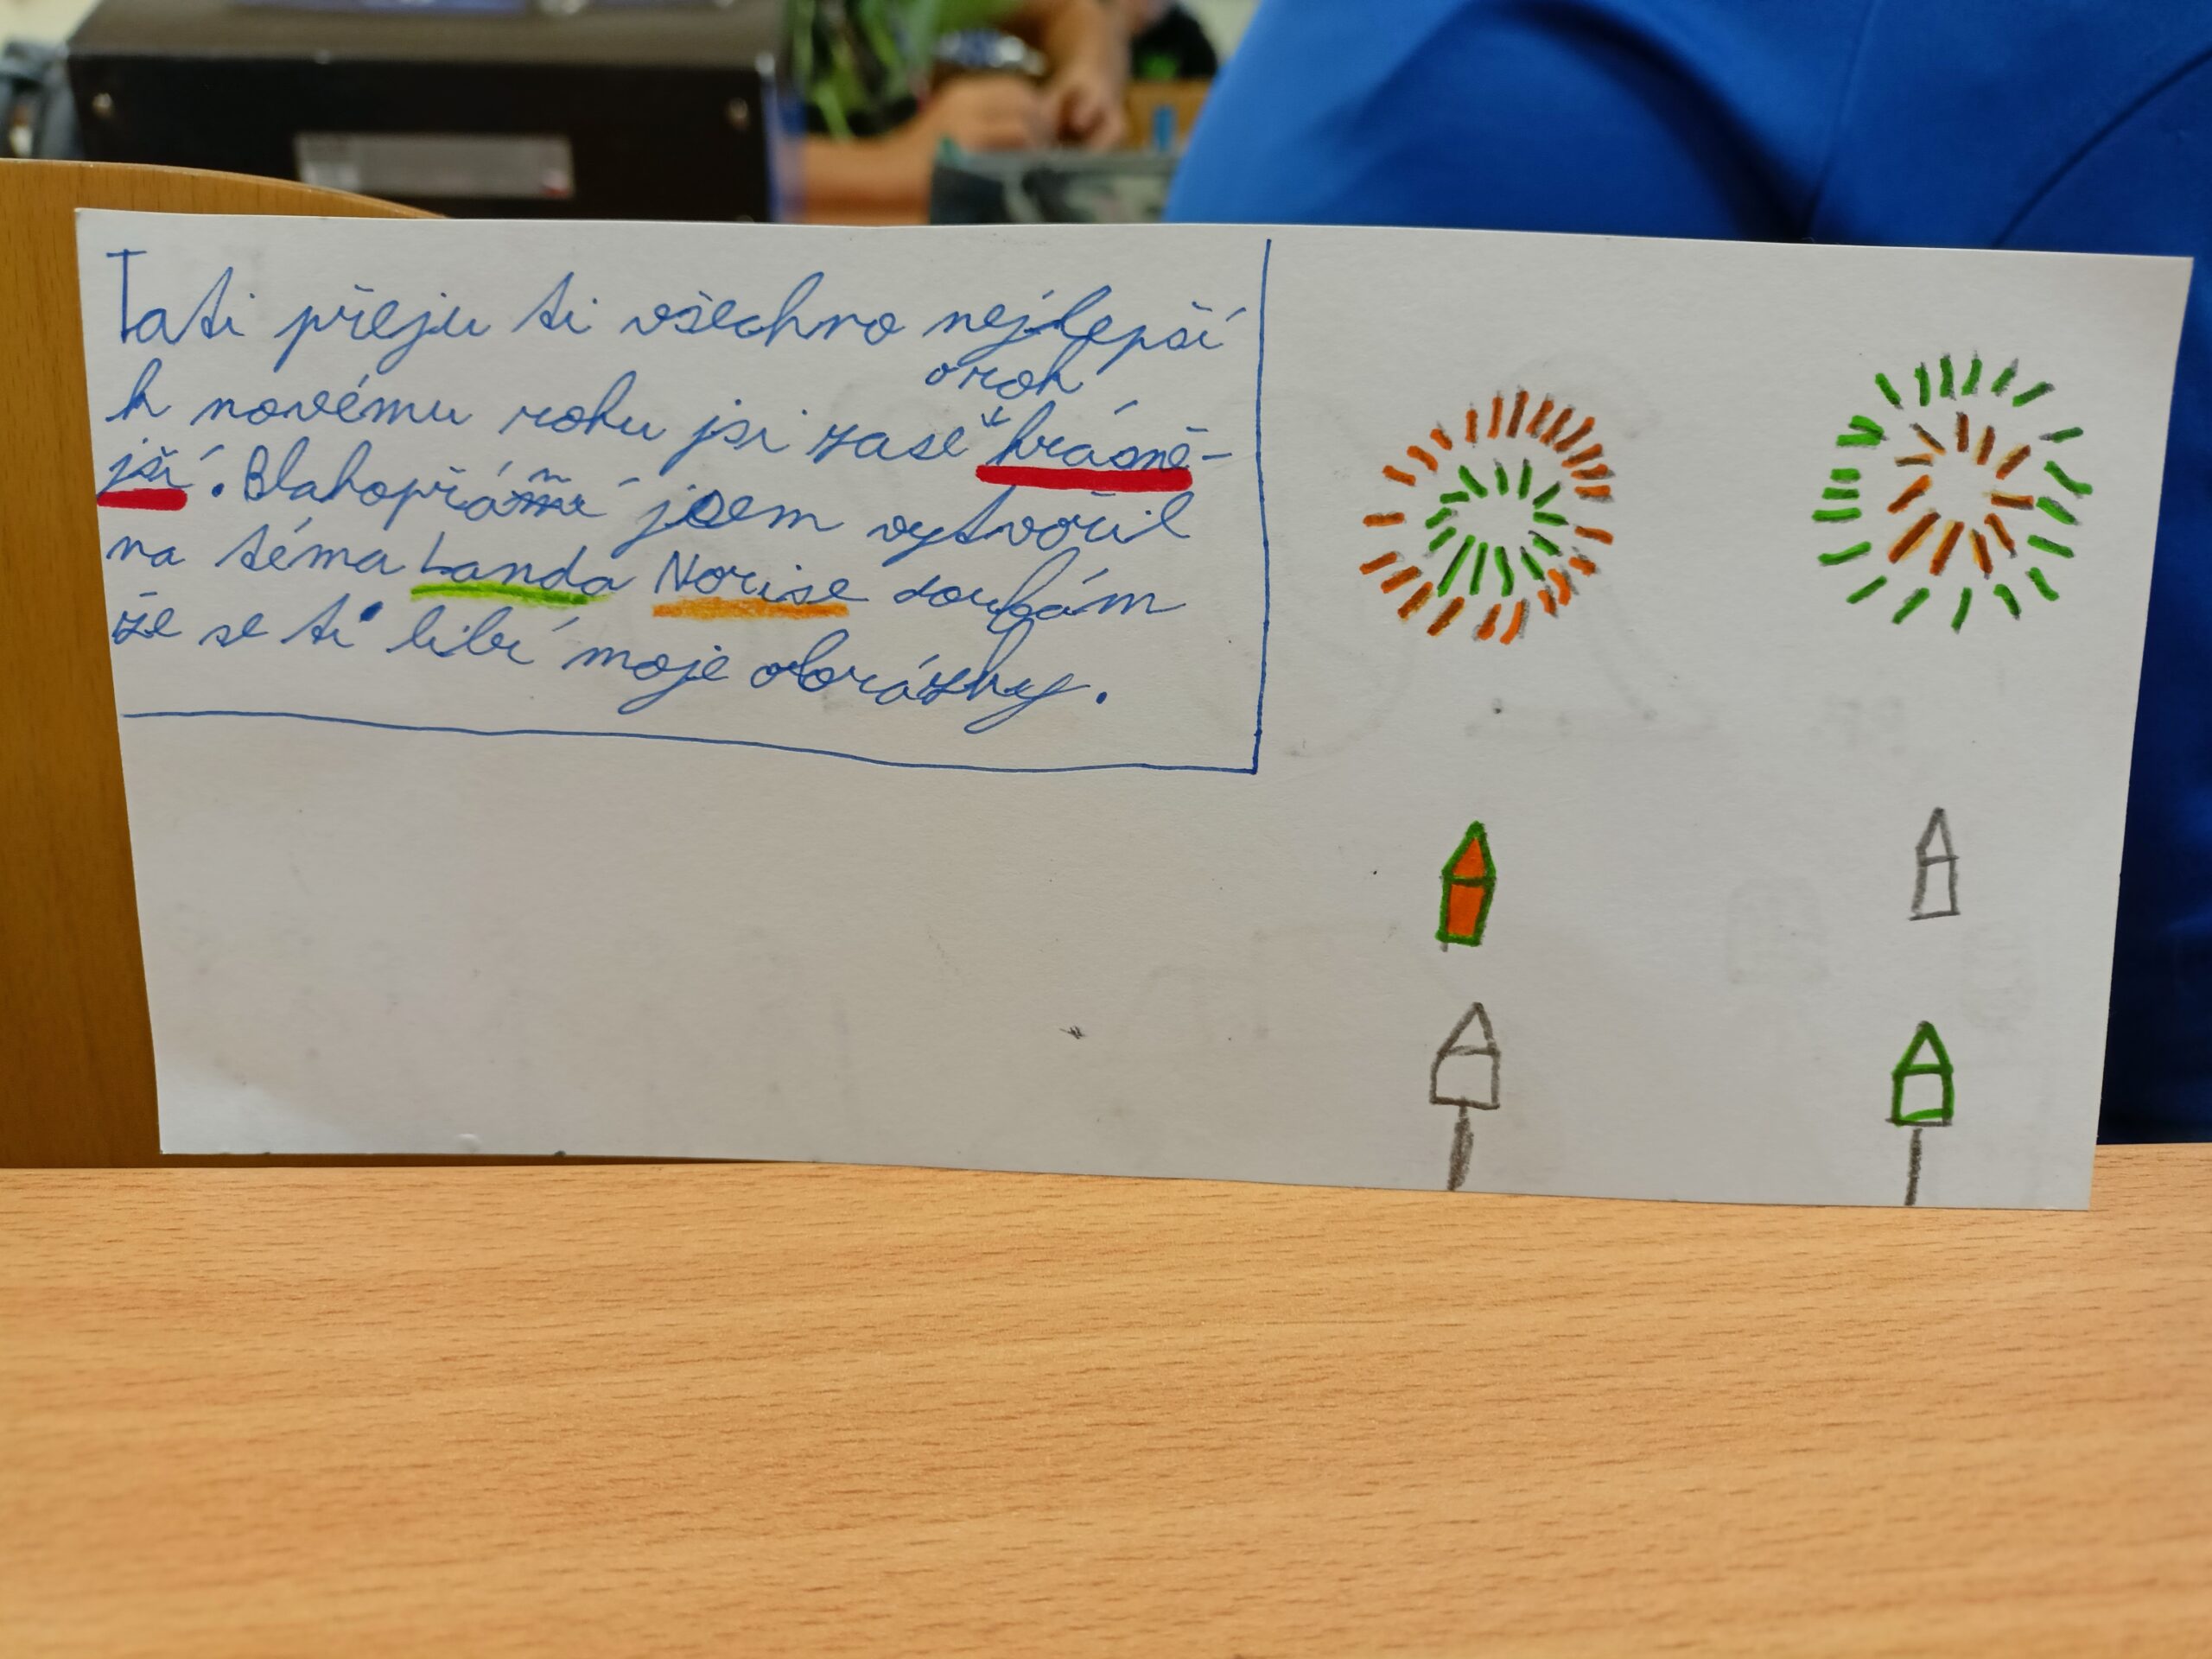 Tati přeju ti všechno nejlepší
o rok
k novému roku jsi zase krásně-
jší. Blahopřání jsem vytvořil
na téma Lando Norise doufám
že se ti líbí moje obrázky.